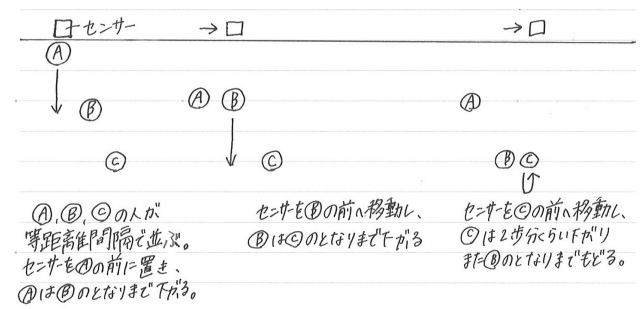 センサー → →
Ⓐ
Ⓑ Ⓐ Ⓑ Ⓐ
Ⓒ Ⓒ Ⓑ Ⓒ
Ⓐ,Ⓑ,Ⓒの人が
等距離間隔で並ぶ。
センサーをⒶの前に置き、
ⒶはⒷのとなりまで下がる。
センサーをⒷの前へ移動し、
ⒷはⒸのとなりまで下がる
センサーをⒸの前へ移動し、
Ⓒは2歩分くらい下がり
またⒷのとなりまでもどる。